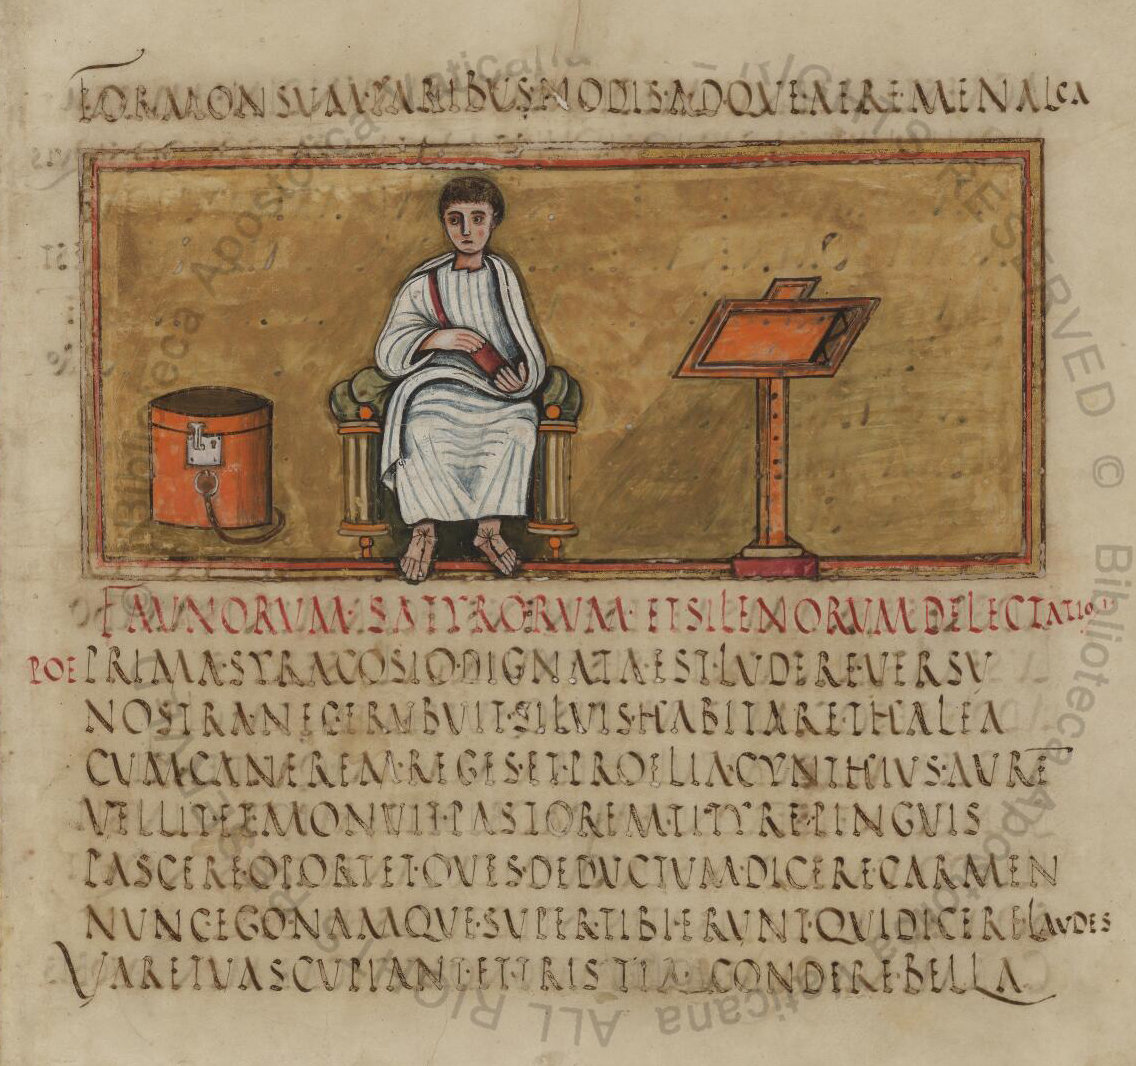 FORMONSVM·PARIBVS·NODIS·ADQVE·AERE·MENALCA
FAVNORVM·SATYRORVM·ET SILENORVM DELECTATIO
POE PRIMA·SYRACOSIO·DIGNATA·EST·LVDERE·VERSV
NOSTRA·NEC·ERVBVIT·SILVIS·HABITARE·THALEA
CVM·CANEREM·REGES·ET·PROELIA·CYNTHIVS·AVRE̅
VELLIT·ET·MONVIT·PASTOREM·TITYRE·PINGVIS
PASCERE·OPORTET·OVES·DEDVCTVM·DICERE·CARMEN
NVNC·EGO·NAMQVE·SVPER·TIBI·ERVNT·QVI·DICERE·LAVDES
VARE·TVAS·CVPIANT·ET·TRISTIA·CONDERE·BELLA
© Biblioteca Apostolica Vaticana ALL RIGHTS RESERVED